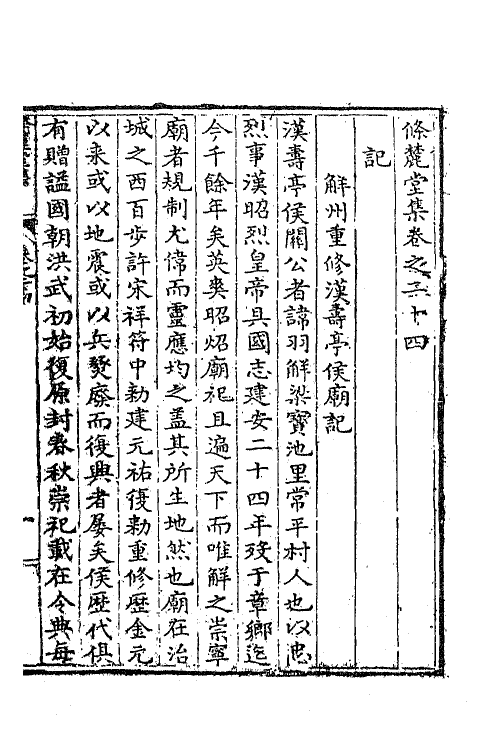 條麓堂集卷之二十四
記
解州重修漢壽亭侯廟記
漢壽亭侯關公者諱羽解梁寶池里常平村人也以忠
烈事漢昭烈皇帝具國志建安二十四年歿于章鄉迄
今千餘年矣英爽昭炤廟祀且遍天下而唯解之崇寧
廟者規制尤偉而靈應均之盖其所生地然也廟在治
城之西百步許宋祥符中勑建元祐復勑重修歷金元
以来或以地震或以兵燹廢而復興者屡矣侯歷代俱
有贈諡國朝洪武初始復原封春秋崇祀載在令典每